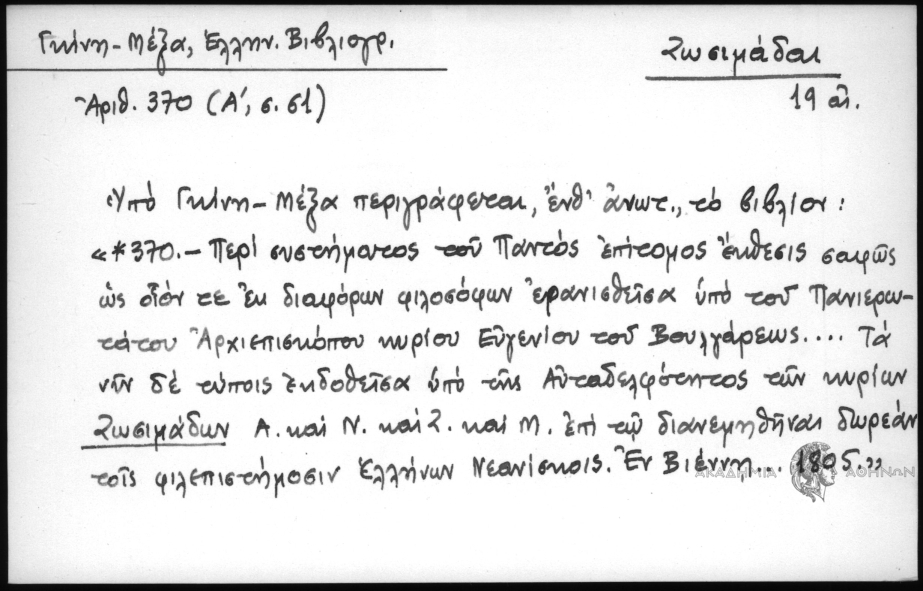 Γκίνη - Μέξα, Ἑλλην. Βιβλιογρ.
Ζωσιμάδαι
Ἀριθ. 370 (Α΄, σ. 51)
19 αἰ.
Ὑπό Γκίνη - Μέξα περιγράφεται, ἔνθ' ἀνωτ., τό βιβλίον:
«*370. - Περί συστήματος τοῦ Παντός ἐπίτομος ἔκθεσις σαφῶς
ὡς οἷόν τε ἐκ διαφόρων φιλοσόφων ἐρανισθεῖσα ὑπό τοῦ Πανιερω-
τάτου Ἀρχιεπισκόπου κυρίου Εὐγενίου τοῦ Βουλγάρεως.... Τά
νῦν δέ τύποις ἐκδοθεῖσα ὑπό τῆς Αὐταδελφότητος τῶν κυρίων
Ζωσιμάδων Α. καί Ν. καί Ζ. καί Μ. ἐπί τῷ διανεμηθῆναι δωρεάν
τοῖς φιλεπιστήμοσιν Ἑλλήνων Νεανίσκοις. Ἐν Βιέννῃ... 1805.»
ΑΚΑΔΗΜΙΑ ΑΘΗΝΩΝ